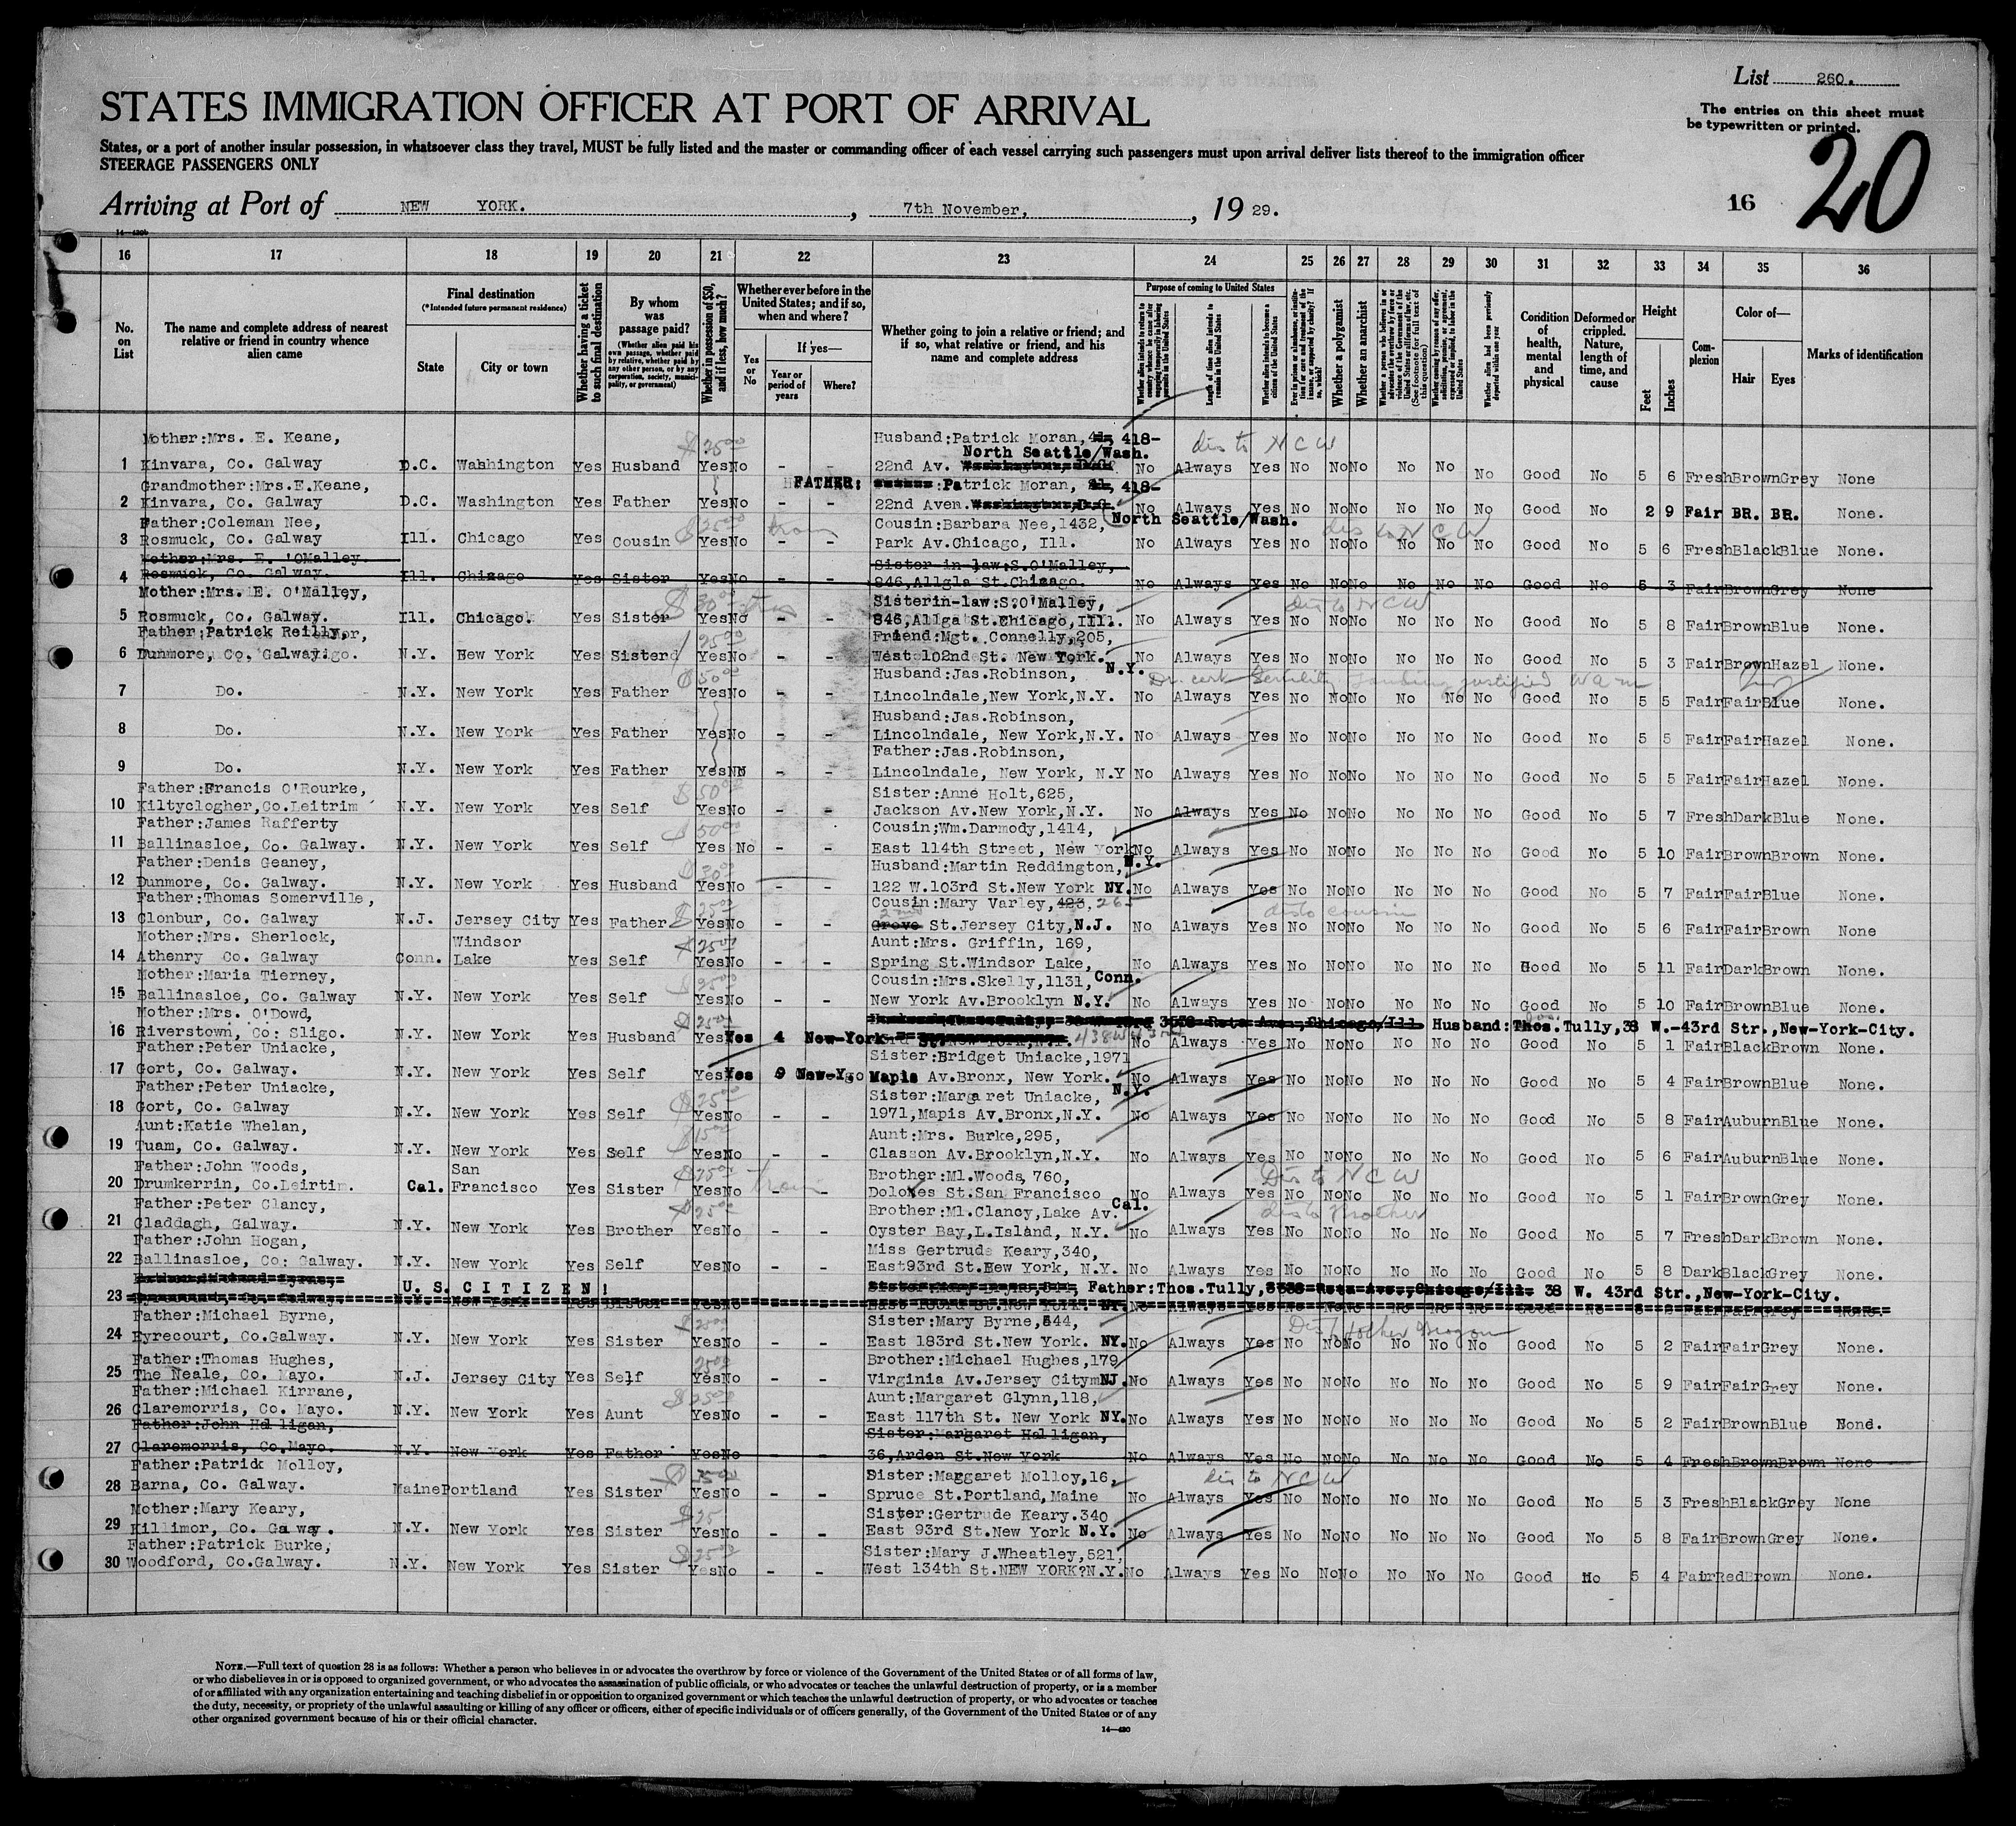 List 260.
STATES IMMIGRATION OFFICER AT PORT OF ARRIVAL
The entries on this sheet must
be typewritten or printed.
States, or a port of another insular possession, in whatsoever class they travel, MUST be fully listed and the master or commanding officer of each vessel carrying such passengers must upon arrival deliver lists thereof to the immigration officer
STEERAGE PASSENGERS ONLY
20
Arriving at Port of NEW YORK. , 7th November, , 19 29. 16
16 17 18 19 20 21 22 23 24 25 26 27 28 29 30 31 32 33 34 35 36
No. on List
The name and complete address of nearest relative or friend in country whence alien came
Final destination
(*Intended future permanent residence)
State
City or town
Whether having a ticket to such final destination
By whom was passage paid?
(Whether alien paid his own passage, whether paid by relative, whether paid by any other person, or by any corporation, society, municipality, or government)
Whether in possession of $50, and if less, how much?
Whether ever before in the United States; and if so, when and where?
Yes or No
If yes—
Year or period of years
Where?
Whether going to join a relative or friend; and if so, what relative or friend, and his name and complete address
Purpose of coming to United States
Length of time alien intends to remain in the United States
Whether alien intends to become a citizen of the United States
Whether a polygamist
Whether an anarchist
Condition of health, mental and physical
Deformed or crippled. Nature, length of time, and cause
Height
Feet
Inches
Complexion
Color of—
Hair
Eyes
Marks of identification
Mother:Mrs. E. Keane, $25 00 Husband:Patrick Moran, 418- dis to NCW
North Seattle/Wash.
1 Kinvara, Co. Galway D.C. Washington Yes Husband Yes No - - 22nd Av. No Always Yes No No No No No No Good No 5 6 Fresh Brown Grey None
Grandmother:Mrs.E.Keane, FATHER: Patrick Moran, 418-
2 Kinvara, Co. Galway D.C. Washington Yes Father Yes No - - 22nd Aven. No Always Yes No No No No No No Good No 2 9 Fair BR. BR. None.
Father:Coleman Nee, $25 00 train Cousin:Barbara Nee,1432, North Seattle/Wash. dis to NCW
3 Rosmuck, Co. Galway Ill. Chicago Yes Cousin Yes No - - Park Av.Chicago, Ill. No Always Yes No No No No No No Good No 5 6 Fresh Black Blue None.
Mother:Mrs. E. 'OMalley. Sister-in-law:S.O'Malley,
4 Rosmuck, Co. Galway. Ill. Chicago Yes Sister Yes No - - 846,Allgla St.Chicago. No Always Yes No No No No No No Good No 5 3 Fair Brown Grey None
Mother:Mrs. E. O'Malley, $30 00 Sisterin-law:S.O'Malley, dis to NCW
5 Rosmuck, Co. Galway. Ill. Chicago. Yes Sister Yes No - - 846,Allga St.Chicago,Ill. No Always Yes No No No No No No Good No 5 8 Fair Brown Blue None.
Father:Patrick Reilly, 25 00 Friend:Mgt. Connelly,205,
6 Dunmore, Co. Galway. N.Y. New York Yes Sister Yes No - - West 102nd St. New York. N.Y. No Always Yes No No No No No No Good No 5 3 Fair Brown Hazel None.
$50 00 Husband:Jas.Robinson, Dr. cert Senility Landing justified
7 Do. N.Y. New York Yes Father Yes No - - Lincolndale,New York,N.Y. No Always Yes No No No No No No Good No 5 5 Fair Fair Blue None.
Husband:Jas.Robinson,
8 Do. N.Y. New York Yes Father Yes No - - Lincolndale, New York,N.Y. No Always Yes No No No No No No Good No 5 5 Fair Fair Hazel None.
Father:Jas.Robinson,
9 Do. N.Y. New York Yes Father Yes No - - Lincolndale, New York, N.Y No Always Yes No No No No No No Good No 5 5 Fair Fair Hazel None.
Father:Francis O'Rourke, $50 00 Sister:Anne Holt,625,
10 Kiltyclogher,Co.Leitrim N.Y. New York Yes Self Yes No - - Jackson Av.New York,N.Y. No Always Yes No No No No No No Good No 5 7 Fresh Dark Blue None.
Father:James Rafferty 50 00 Cousin;Wm.Darmody,1414,
11 Ballinasloe, Co. Galway. N.Y. New York Yes Self Yes No - - East 114th Street, New York N.Y. No Always Yes No No No No No No Good No 5 10 Fair Brown Brown None.
Father:Denis Geaney, $30 00 Husband:Martin Reddington,
12 Dunmore, Co. Galway. N.Y. New York Yes Husband Yes No - - 122 W.103rd St.New York NY. No Always Yes No No No No No No Good No 5 7 Fair Fair Blue None.
Father:Thomas Somerville, $25 00 Cousin:Mary Varley,423, 265 dis to cousin
13 Clonbur, Co. Galway N.J. Jersey City Yes Father Yes No - - Grove 2nd St.Jersey City,N.J. No Always Yes No No No No No No Good No 5 6 Fair Fair Brown None
Mother:Mrs. Sherlock, Windsor $25 00 Aunt:Mrs. Griffin, 169,
14 Athenry Co. Galway Conn. Lake Yes Self Yes No - - Spring St.Windsor Lake, Conn. No Always Yes No No No No No No Good No 5 11 Fair Dark Brown None.
Mother:Maria Tierney, $25 00 Cousin:Mrs.Skelly,1131,
15 Ballinasloe, Co. Galway N.Y. New York Yes Self Yes No - - New York Av.Brooklyn N.Y. No Always Yes No No No No No No Good No 5 10 Fair Brown Blue None.
Mother:Mrs. O'Dowd, $25 00 3538 Reta Ave.,Chicago/Ill. Husband:Thos.Tully,38 W.-43rd Str.,New-York-City.
16 Riverstown, Co: Sligo. N.Y. New York Yes Husband Yes Yes 4 New-York No Always Yes No No No No No No Good No 5 1 Fair Black Brown None.
Father:Peter Uniacke, Sister:Bridget Uniacke,1971
17 Gort, Co. Galway. N.Y. New York Yes Self Yes Yes 9 New-Y Mapis Av.Bronx, New York. N.Y. No Always Yes No No No No No No Good No 5 4 Fair Brown Blue None.
Father:Peter Uniacke, $25 00 Sister:Margaret Uniacke,
18 Gort, Co. Galway N.Y. New York Yes Self Yes No - - 1971,Mapis Av.Bronx,N.Y. No Always Yes No No No No No No Good No 5 8 Fair Auburn Blue None.
Aunt:Katie Whelan, $15 00 Aunt:Mrs. Burke,295,
19 Tuam, Co. Galway. N.Y. New York Yes Self Yes No - - Classon Av.Brooklyn,N.Y. No Always Yes No No No No No No Good No 5 6 Fair Auburn Blue None.
Father:John Woods, San $25 00 train Brother:Ml.Woods,760, Dis to NCW
20 Drumkerrin, Co.Leirtim. Cal. Francisco Yes Sister Yes No Dolores St.San Francisco Cal. No Always Yes No No No No No No Good No 5 1 Fair Brown Grey None.
Father:Peter Clancy, $25 00 Brother:Ml.Clancy,Lake Av. dis to brother
21 Claddagh, Galway. N.Y. New York Yes Brother Yes No - - Oyster Bay,L.Island, N.Y. No Always Yes No No No No No No Good No 5 7 Fresh Dark Brown None.
Father:John Hogan, Miss Gertrude Keary,340,
22 Ballinasloe, Co: Galway. N.Y. New York Yes Self Yes No - - East93rd St.New York, N.Y. No Always Yes No No No No No No Good No 5 8 Dark Black Grey None.
U. S. C I T I Z E N ! Father:Thos.Tully, 3538 Reta Ave.,Chicago/Ill. 38 W. 43rd Str.,New-York-City.
23
Father:Michael Byrne, $25 00 Sister:Mary Byrne,544,
24 Eyrecourt, Co.Galway. N.Y. New York Yes Sister Yes No - - East 183rd St.New York. NY. No Always Yes No No No No No No Good No 5 2 Fair Fair Grey None.
Father:Thomas Hughes, 25 00 Brother:Michael Hughes,179
25 The Neale, Co. Mayo. N.J. Jersey City Yes Self Yes No - - Virginia Av.Jersey City NJ. No Always Yes No No No No No No Good No 5 9 Fair Fair Grey None.
Father:Michael Kirrane, $25 00 Aunt:Margaret Glynn,118,
26 Claremorris, Co. Mayo. N.Y. New York Yes Aunt Yes No - - East 117th St. New York NY. No Always Yes No No No No No No Good No 5 2 Fair Brown Blue Bond.
Father:John Halligan, Sister:Margaret Halligan,
27 Claremorris, Co.Mayo. N.Y. New York Yes Father Yes No - - 36,Arden St.New York No Always Yes No No No No No No Good No 5 4 Fresh Brown Brown None
Father:Patrick Molloy, Sister:Margaret Molloy,16, dis to NCW
28 Barna, Co. Galway. Maine Portland Yes Sister Yes No - - Spruce St.Portland,Maine No Always Yes No No No No No No Good No 5 3 Fresh Black Grey None
Mother:Mary Keary, $25 Sister:Gertrude Keary.340
29 Killimor, Co. Galway. N.Y. New York Yes Sister Yes No - - East 93rd St.New York N.Y. No Always Yes No No No No No No Good No 5 8 Fair Brown Grey None.
Father:Patrick Burke, $25 00 Sister:Mary J.Wheatley,521,
30 Woodford, Co.Galway. N.Y. New York Yes Sister Yes No - - West 134th St.NEW YORK?N.Y. No Always Yes No No No No No No Good No 5 4 Fair Red Brown None.
NOTE.—Full text of question 28 is as follows: Whether a person who believes in or advocates the overthrow by force or violence of the Government of the United States or of all forms of law,
or who disbelieves in or is opposed to organized government, or who advocates the assassination of public officials, or who advocates or teaches the unlawful destruction of property, or is a member
of or affiliated with any organization entertaining and teaching disbelief in or opposition to organized government or which teaches the unlawful destruction of property, or who advocates or teaches
the duty, necessity, or propriety of the unlawful assaulting or killing of any officer or officers, either of specific individuals or of officers generally, of the Government of the United States or of any
other organized government because of his or their official character.
14—430